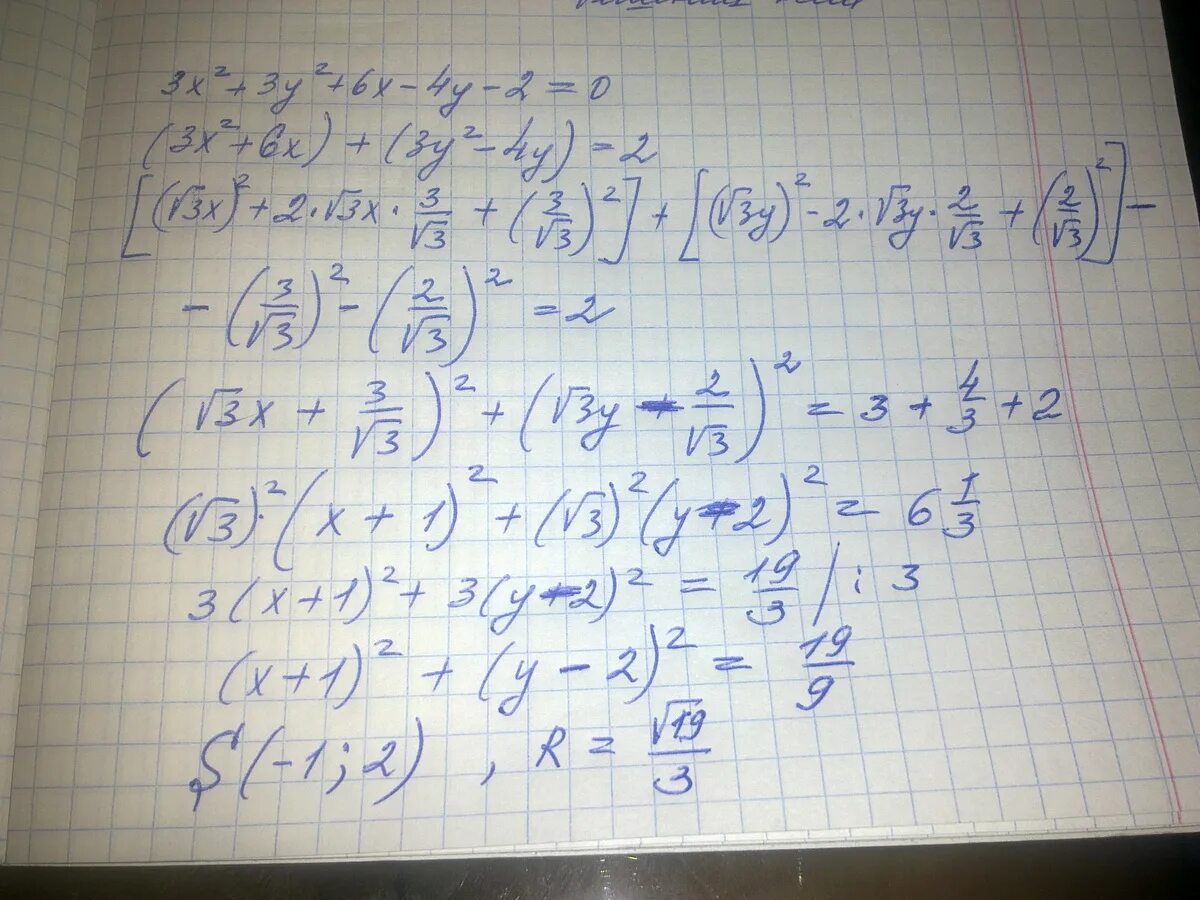 3x² + 3y² + 6x - 4y - 2 = 0
(3x² + 6x) + (3y² - 4y) = 2
[(√3x)² + 2·√3x·3/√3 + (3/√3)²] + [(√3y)² - 2·√3y·2/√3 + (2/√3)²] -
- (3/√3)² - (2/√3)² = 2
(√3x + 3/√3)² + (√3y - 2/√3)² = 3 + 4/3 + 2
(√3)²·(x + 1)² + (√3)²(y - 2)² = 6 1/3
3(x+1)² + 3(y-2)² = 19/3 / : 3
(x+1)² + (y - 2)² = 19/9
S(-1; 2) , R = √19/3